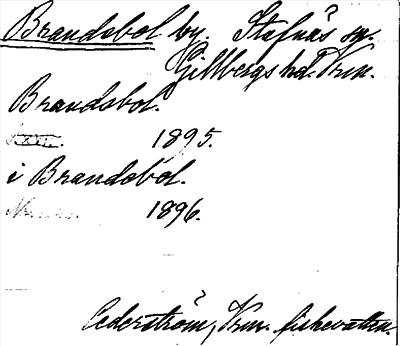 Brandsbol by. Stafnäs sn.
Gillbergs hd. Vrm.
Brandsbol.
1895.
i Brandsbol.
1896.
Cederström, Vrm. fiskevatten.